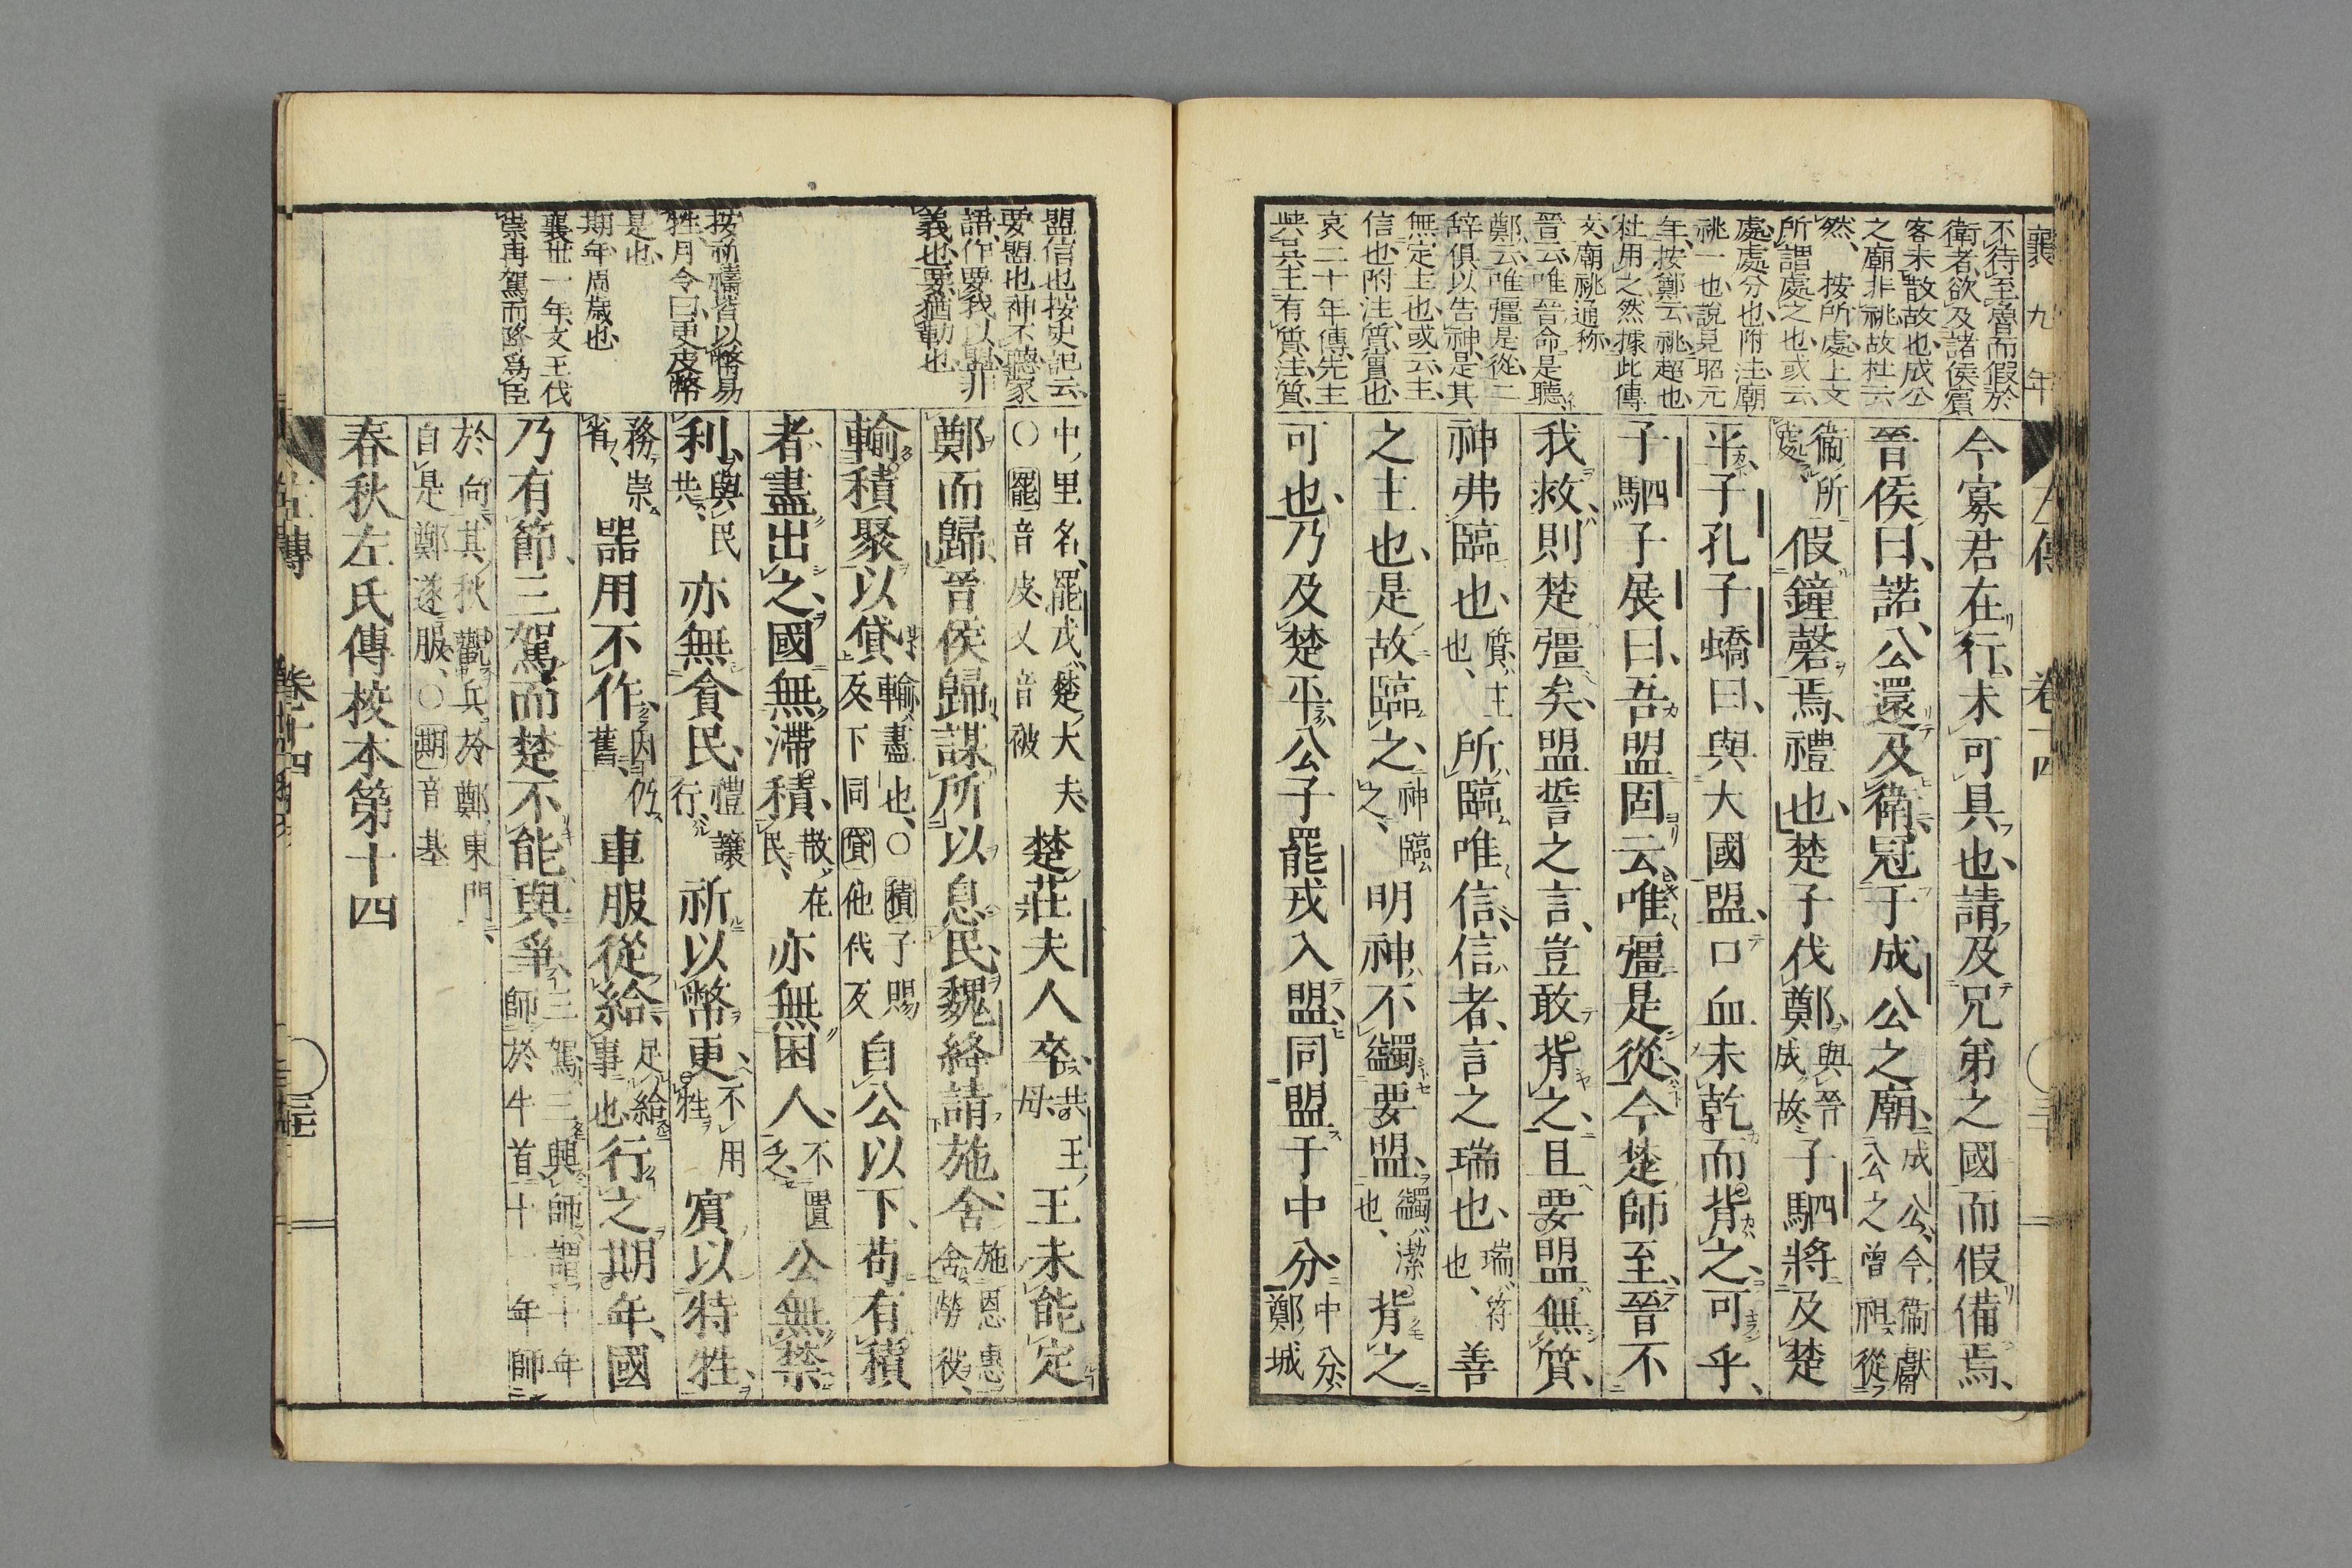 襄九年
不待至魯而假於
衛者欲及諸侯賓
客未散故也成公
之廟非祧故杜云
然、按所處上文
所謂處之也或云、
處處分也附注廟
祧一也說見昭元
年、按鄭云祧超也、
杜用之然據此傳
文、廟祧通称、
晉云、唯晉命是聽、
鄭云、唯彊是從、二
辞俱以告神、是其
無定主也、或云、主、
信也、附注、質實也、
哀二十年傳、先主
與吳王有質、注質、
今寡君在行、未可具也、請及兄弟之國而假備焉、
晉侯曰、諾、公還及衛、冠于成公之廟、成公、今衛獻公之曾祖、從
衛所處、假鐘磬焉、禮也、楚子伐鄭、與晉成故、子駟將及楚
平、子孔子蟜曰、與大國盟、口血未乾而背之、可乎、
子駟子展曰、吾盟固云、唯彊是從、今楚師至、晉不
我救、則楚彊矣、盟誓之言、豈敢背之、且要盟無質、
神弗臨也、質、主也、所臨唯信、信者、言之瑞也、瑞、符也、善
之主也、是故臨之、神臨之、明神不蠲要盟、蠲、潔也、背之
可也、乃及楚平、公子罷戎入盟、同盟于中分、中分、鄭城
盟信也按史記云、
要盟也神不聽家
語、作要我以盟、非
義也、要、猶勒也
按祈禱皆以幣易
牲月令曰、更皮幣
是也、
期年、周歳也、
襄卅一年、文王伐
崇再駕而降爲臣
中、里名、罷戎、楚大夫、○罷音皮、又音被、楚莊夫人卒、共王母、王未能定
鄭而歸、晉侯歸、謀所以息民、魏絳請施舍、施恩惠、舍勞役、
輸積聚以貸、輸、盡也、○積子賜反下同貸他代反自公以下、苟有積
者、盡出之、國無滯積、散在民、亦無困人、不匱乏、公無禁
利、與民共、亦無貪民、禮讓行、祈以幣更、不用牲、賓以特牲、
務崇省、器用不作、因仍舊、車服從給、足給事也、行之期年、國
乃有節、三駕而楚不能與爭、三駕、三興師、謂十年師於牛首、十一年師
於向、其秋觀兵於鄭東門、自是鄭遂服、○期音基
春秋左氏傳校本第十四